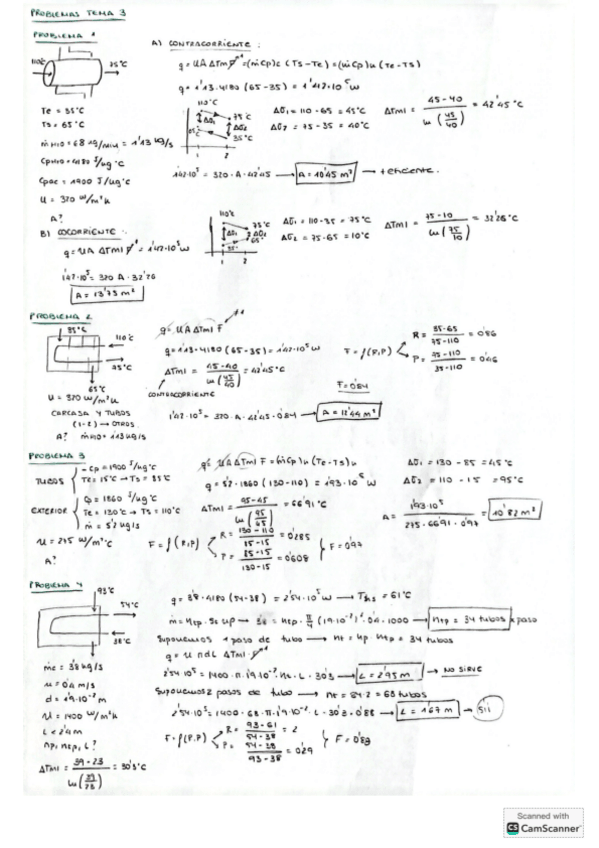 PROBLEMAS TEMA 3
PROBLEMA 1
110°C
75°C
Te = 35°C
Ts = 65°C
ṁ H2O = 68 kg/min = 1'13 kg/s
CpH2O = 4180 J/kg°C
Cpac = 1900 J/kg°C
U = 320 W/m²K
A?
A) CONTRACORRIENTE:
q = UA ΔTml F = (ṁCp)c (Ts-Te) = (ṁCp)h (Te-Ts)
q = 1'13·4180 (65-35) = 1'42·10⁵ W
110°C
75°C
65°C
35°C
1 2
Δθ1 = 110-65 = 45°C
Δθ2 = 75-35 = 40°C
ΔTml = 45-40 / ln(45/40) = 42'45°C
1'42·10⁵ = 320·A·42'45 → A = 10'45 m² → + eficiente.
B) COCORRIENTE:
q = UA ΔTml F = 1'42·10⁵ W
1'42·10⁵ = 320 A·32'26
A = 13'75 m²
110°C
75°C
65°
35°
1 2
Δθ1 = 110-35 = 75°C
Δθ2 = 75-65 = 10°C
ΔTml = 75-10 / ln(75/10) = 32'26°C
PROBLEMA 2
35°C
110°C
75°C
65°C
U = 320 W/m²K
CARCASA Y TUBOS
(1-2) → OTROS
A? ṁH2O = 1'13 kg/s
q = UA ΔTml F
q = 1'13·4180 (65-35) = 1'42·10⁵ W
ΔTml = 45-40 / ln(45/40) = 42'45°C
CONTRACORRIENTE
F = f(R,P)
R = 35-65 / 75-110 = 0'86
P = 75-110 / 35-110 = 0'46
F = 0'84
1'42·10⁵ = 320·A·42'45·0'84 → A = 12'44 m²
PROBLEMA 3
TUBOS
Cp = 1900 J/kg°C
Te = 15°C → Ts = 85°C
EXTERIOR
Cp = 1860 J/kg°C
Te = 130°C → Ts = 110°C
ṁ = 5'2 kg/s
U = 275 W/m²°C
A?
q = UA ΔTml F = (ṁCp)h (Te-Ts)h
q = 5'2·1860 (130-110) = 1'93·10⁵ W
ΔTml = 95-45 / ln(95/45) = 66'91°C
F = f(R,P)
R = 130-110 / 85-15 = 0'285
P = 85-15 / 130-15 = 0'608
F = 0'97
Δθ1 = 130-85 = 45°C
Δθ2 = 110-15 = 95°C
A = 1'93·10⁵ / 275·66'91·0'97 = 10'82 m²
PROBLEMA 4
93°C
54°C
38°C
ṁc = 3'8 kg/s
u = 0'4 m/s
d = 1'9·10⁻² m
U = 1400 W/m²K
L < 2'4m
np, ntp, L?
ΔTml = 39-23 / ln(39/23) = 30'3°C
q = 3'8·4180 (54-38) = 2'54·10⁵ W → Ths = 61°C
ṁ = ntp·Sc·u·ρ → 3'8 = ntp·π/4 (1'9·10⁻²)²·0'4·1000 → ntp = 34 tubos x paso
Suponemos 1 paso de tubo → nt = np·ntp = 34 tubos
q = U π d L ΔTml F
2'54·10⁵ = 1400·π·1'9·10⁻²·nt·L·30'3 → L = 2'95 m → NO SIRVE
Suponemos 2 pasos de tubo → nt = 34·2 = 68 tubos
2'54·10⁵ = 1400·68·π·1'9·10⁻²·L·30'3·0'88 → L = 1'67 m → Sii
F = f(R,P)
R = 93-61 / 54-38 = 2
P = 54-38 / 93-38 = 0'29
F = 0'88
Scanned with
CS CamScanner